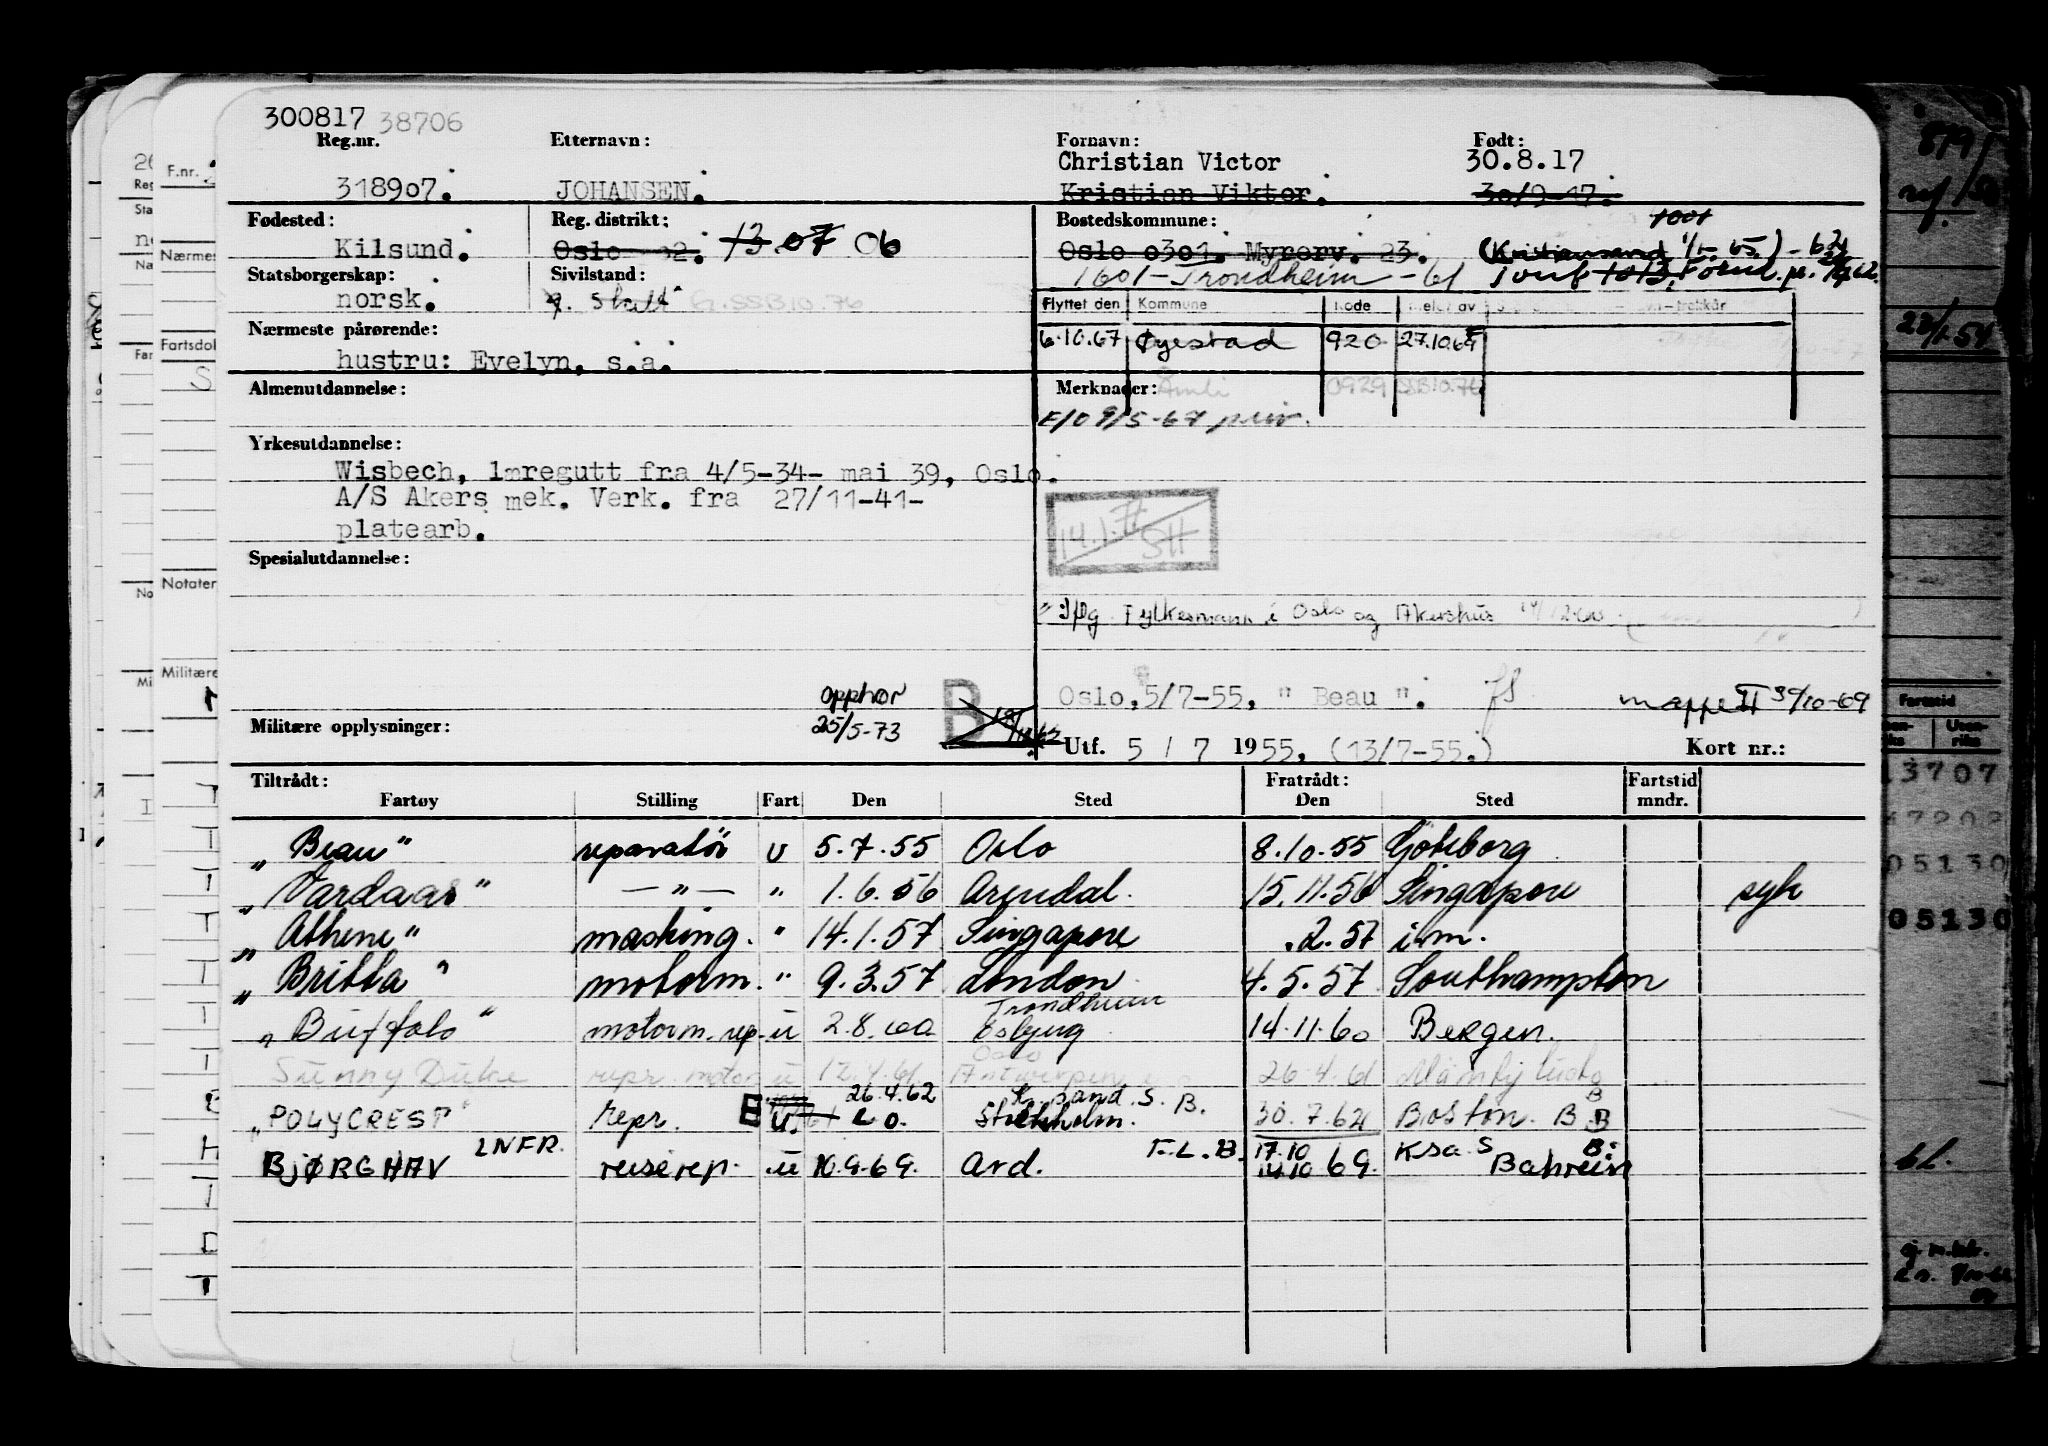 300817 38706
Reg.nr. Etternavn: Fornavn: Født:
Christian Victor 30.8.17
318907. JOHANSEN. Kristian Viktor. 30/9-17.
Fødested: Reg. distrikt: Bostedskommune: 1001
Kilsund. Oslo 02. 13 07 06 Oslo 0301. Myrerv. 23. (Kristiansand 1/1-65.)
Statsborgerskap: Sivilstand: 1601-Trondheim-61
norsk. g. SSB10.76
Flyttet den Kommune Kode Meldt av
Nærmeste pårørende: 6.10.67 Øyestad 920 27.10.69
hustru: Evelyn, s.a.
Almenutdannelse: Merknader: Åmli 0929 SSB10.76
Yrkesutdannelse:
Wisbech, læregutt fra 4/5-34- mai 39, Oslo.
A/S Akers mek. Verk. fra 27/11-41-
platearb.
14.1.71 SH
Spesialutdannelse:
Fylkesmann i Oslo og Akershus
opphør B Oslo, 5/7-55, " Beau ". mappe II 30/10-69
Militære opplysninger: 25/5-73 Utf. 5 / 7 1955. (13/7-55.) Kort nr.:
Tiltrådt: Fratrådt: Fartstid
Fartøy Stilling Fart Den Sted Den Sted mndr.
„Beau" reparatør u 5.7.55 Oslo 8.10.55 Göteborg
„Vardaas" —"— " 1.6.56 Arendal. 15.11.56 Singapore syk
„Athene" masking. " 14.1.57 Singapore .2.57 i.m.
„Britta" motorm. " 9.3.57 London 4.5.57 Southampton
Trondheim
„Buffalo" motorm.rep. u 2.8.60 Esbjerg 14.11.60 Bergen.
Oslo
Sunny Duke repr. motor u 12.4.61 Antwerpen 26.4.61
26.4.62 Kr.sand.S. B. B
„POLYCREST" repr. E u. Stockholm. 30.7.62 Boston. B
LNFR. F.L.B. 17.10 Ksa. S B:
BJØRGHAV reiserep. u 10.9.69. Ard. 14.10 69. Bahrein
F.nr.
Nærmes
Fartsdol
Notater
Militære
22/1-54
Fartstid
13707
05130
05130